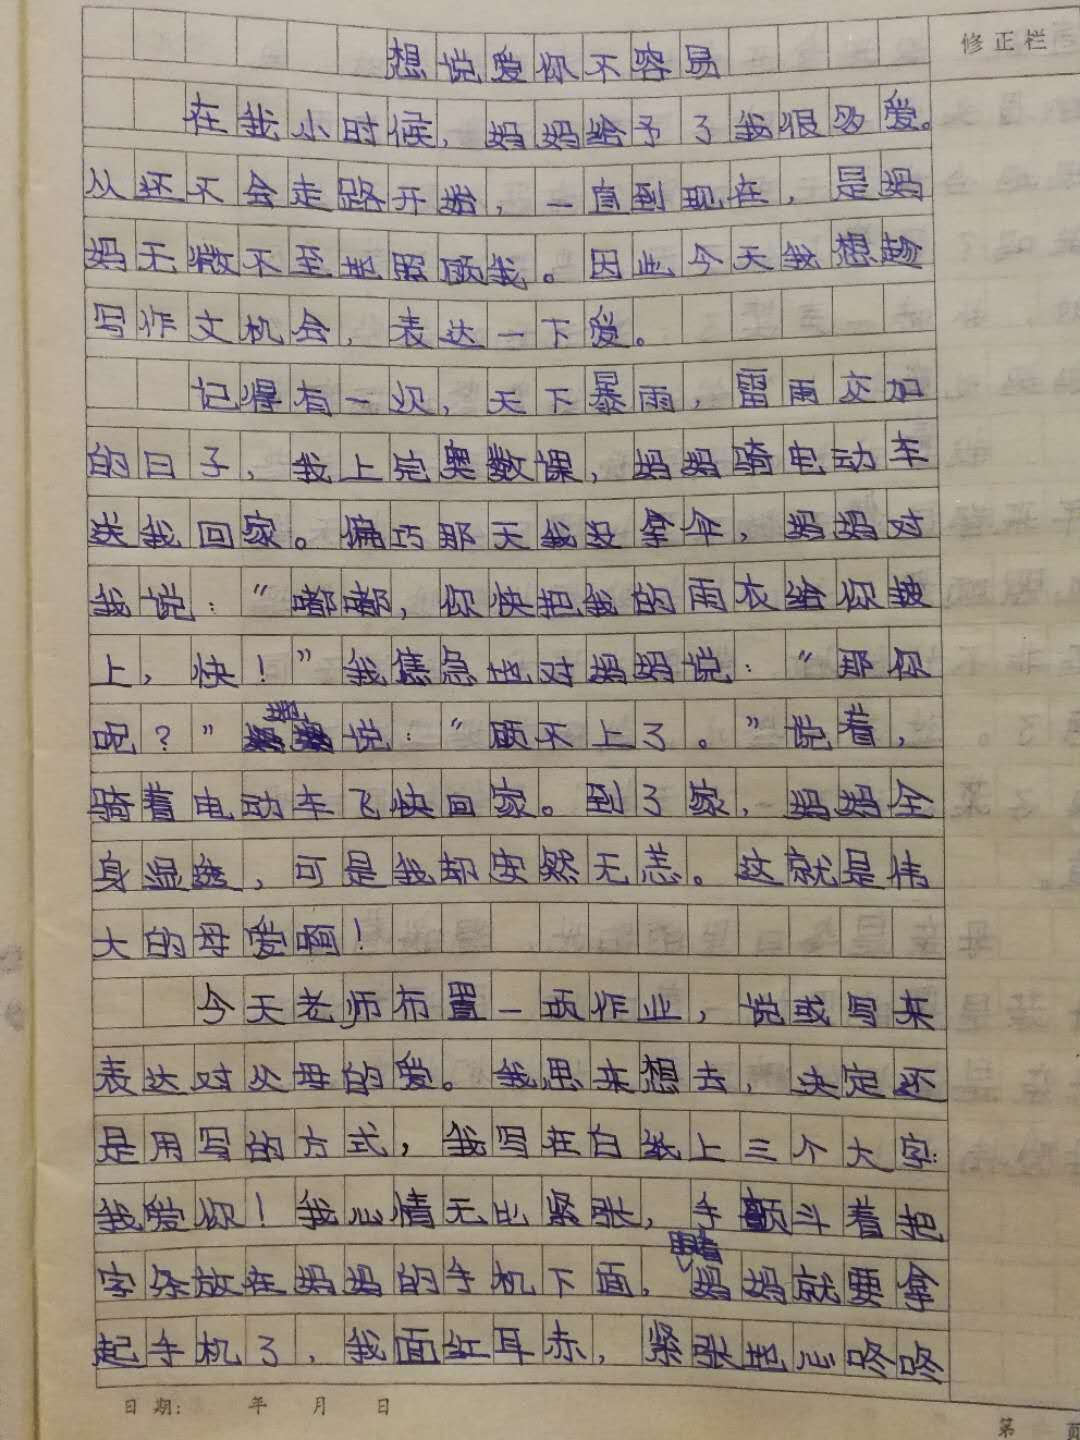 修正栏
想说爱你不容易
在我小时候，妈妈给予了我很多爱。
从还不会走路开始，一直到现在，是妈
妈无微不至地照顾我。因此今天我想趁
写作文机会，表达一下爱。
记得有一次，天下暴雨，雷雨交加
的日子，我上完奥数课，妈妈骑电动车
送我回家。偏巧那天我没拿伞，妈妈对
我说：“嘟嘟，你快把我的雨衣给你披
上，快！”我焦急地对妈妈说：“那你
呢？”说：“顾不上了。”说着，
骑着电动车飞快回家。到了家，妈妈全
身温透，可是我却安然无恙。这就是伟
大的母爱啊！
今天老师布置一项作业，说或写来
表达对父母的爱。我思来想去，决定还
是用写的方式，我写在白纸上三个大字：
我爱你！我心情无比紧张，手颤斗着把
字条放在妈妈的手机下面，眼看妈妈就要拿
起手机了，我面红耳赤，紧张地心咚咚
日期： 年 月 日
第 页